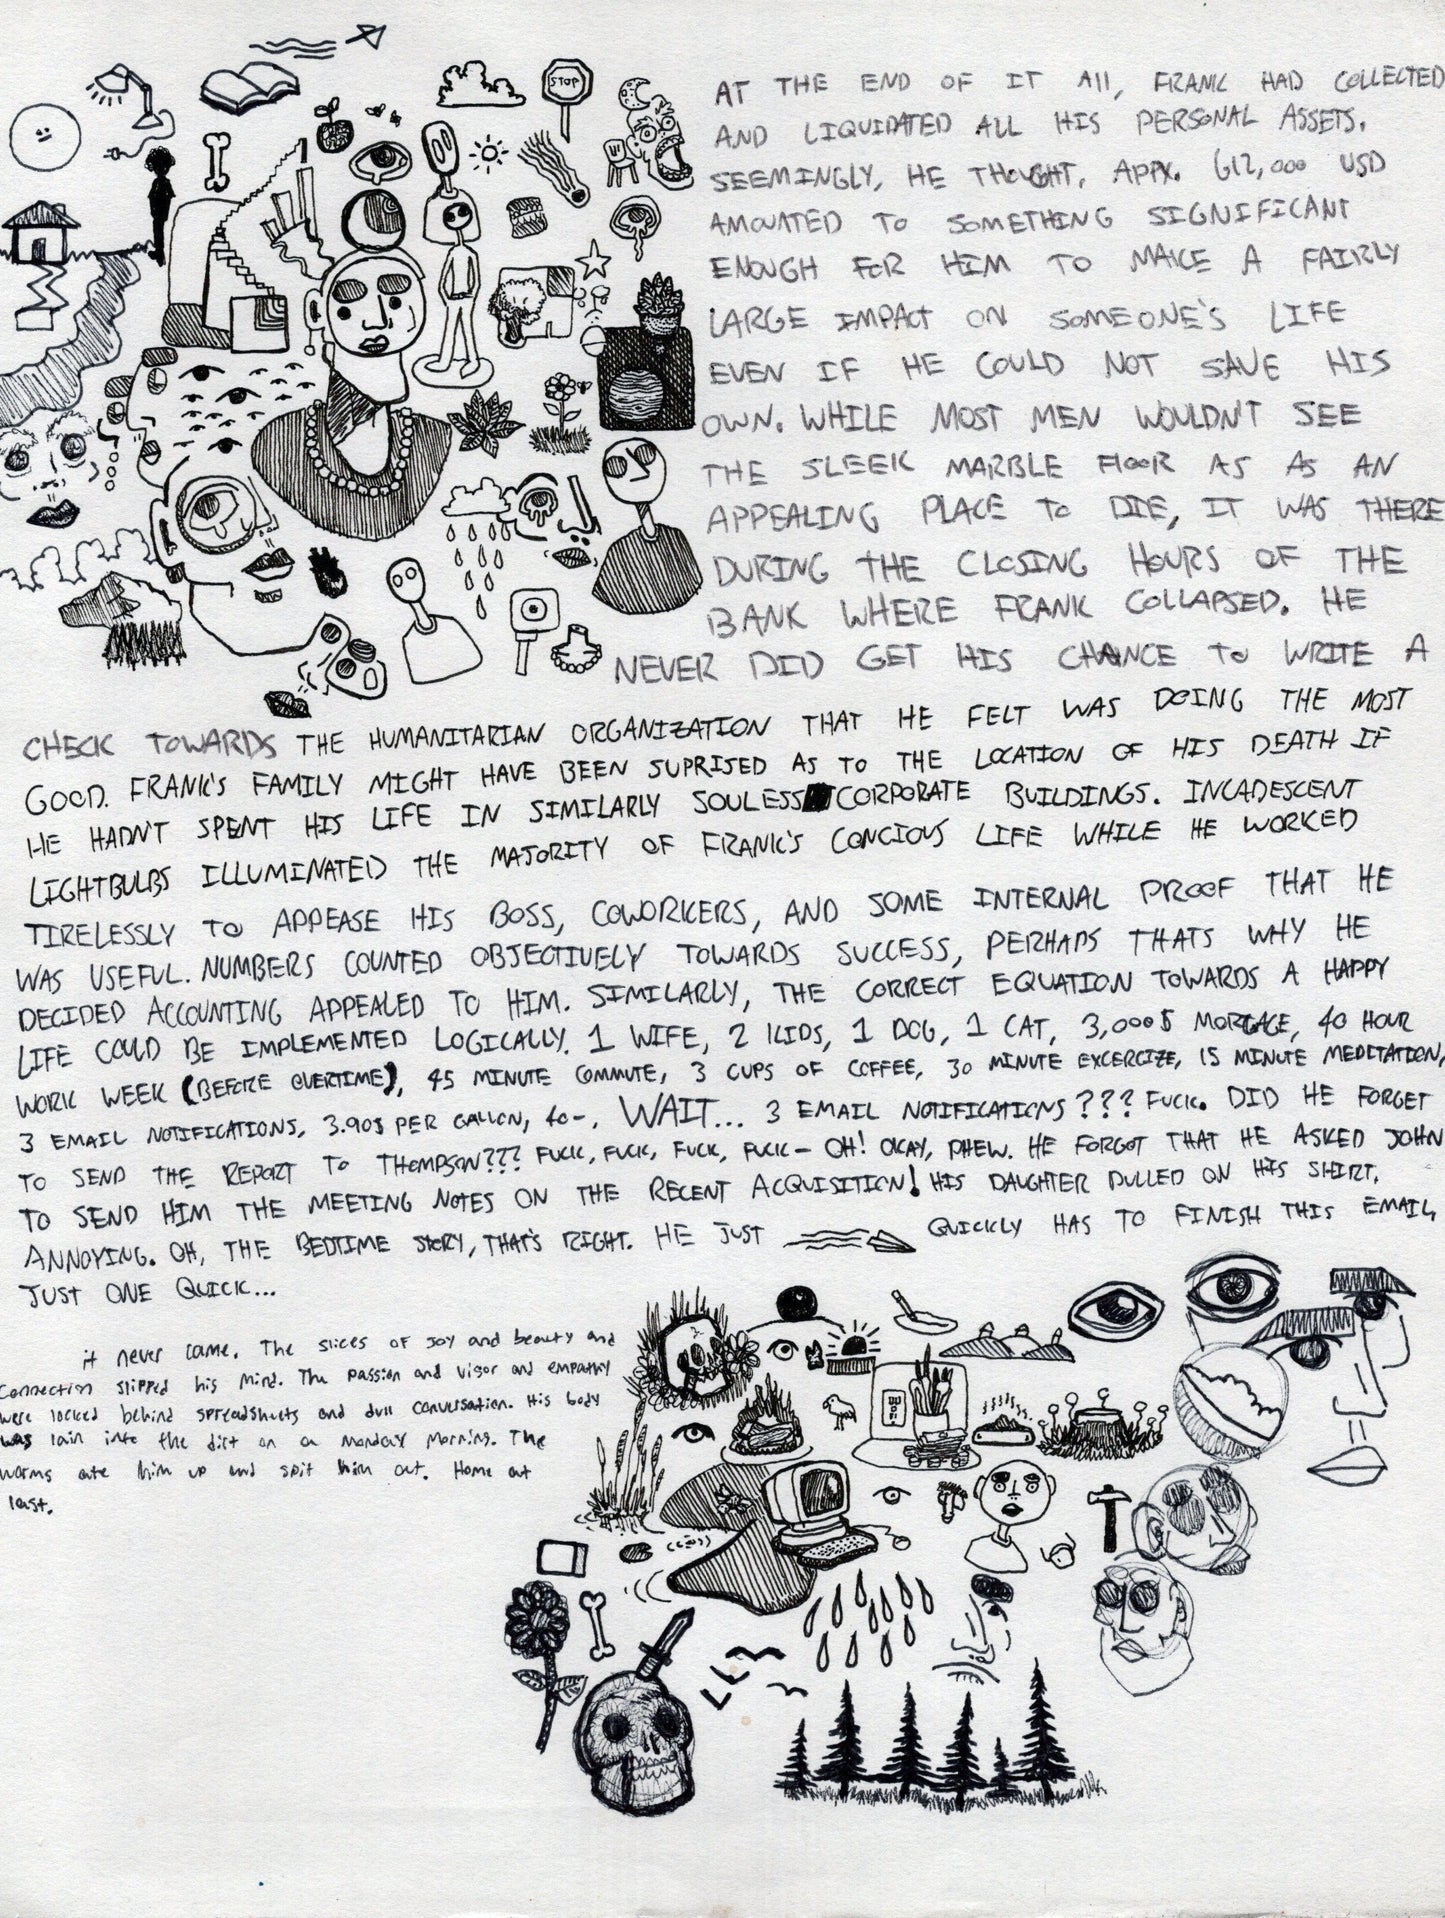 STOP
AT THE END OF IT All, FRANK HAD COLLECTED
AND LIQUIDATED ALL HIS PERSONAL ASSETS.
SEEMINGLY, HE THOUGHT, APPX. 612,000 USD
AMOUNTED TO SOMETHING SIGNIFICANT
ENOUGH FOR HIM TO MAKE A FAIRLY
LARGE IMPACT ON SOMEONE'S LIFE
EVEN IF HE COULD NOT SAVE HIS
OWN. WHILE MOST MEN WOULDN'T SEE
THE SLEEK MARBLE FlOOR AS AS AN
APPEALING PLACE TO DIE, IT WAS THERE
DURING THE CLOSING HOURS OF THE
BANK WHERE FRANK COLLAPSED. HE
NEVER DID GET HIS CHANCE TO WRITE A
CHECK TOWARDS THE HUMANITARIAN ORGANIZATION THAT HE FELT WAS DOING THE MOST
GOOD. FRANK'S FAMILY MIGHT HAVE BEEN SUPRISED AS TO THE LOCATION OF HIS DEATH IF
HE HADN'T SPENT HIS LIFE IN SIMILARLY SOULESS CORPORATE BUILDINGS. INCADESCENT
LIGHTBULBS ILLUMINATED THE MAJORITY OF FRANK'S CONCIOUS LIFE WHILE HE WORKED
TIRELESSLY TO APPEASE HIS BOSS, COWORKERS, AND SOME INTERNAL PROOF THAT HE
WAS USEFUL. NUMBERS COUNTED OBJECTIVELY TOWARDS SUCCESS, PERHAPS THATS WHY HE
DECIDED ACCOUNTING APPEALED TO HIM. SIMILARLY, THE CORRECT EQUATION TOWARDS A HAPPY
LIFE COULD BE IMPLEMENTED LOGICALLY. 1 WIFE, 2 KIDS, 1 DOG, 1 CAT, 3,000$ MORTGAGE, 40 HOUR
WORK WEEK (BEFORE OVERTIME), 45 MINUTE COMMUTE, 3 CUPS OF COFFEE, 30 MINUTE EXCERCIZE, 15 MINUTE MEDITATION,
3 EMAIL NOTIFICATIONS, 3.90$ PER GALLON, 40-, WAIT... 3 EMAIL NOTIFICATIONS??? FUCK. DID HE FORGET
TO SEND THE REPORT TO THOMPSON??? FUCK, FUCK, FUCK, FUCK- OH! OKAY, PHEW. HE FORGOT THAT HE ASKED JOHN
TO SEND HIM THE MEETING NOTES ON THE RECENT ACQUISITION! HIS DAUGHTER PULLED ON HIS SHIRT.
ANNOYING. OH, THE BEDTIME STORY, THAT'S RIGHT. HE JUST QUICKLY HAS TO FINISH THIS EMAIL,
JUST ONE QUICK...
it never came. The slices of joy and beauty and
connection slipped his mind. The passion and vigor and empathy
were locked behind spreadsheets and dull conversation. His body
was lain into the dirt on a Monday Morning. The
worms ate him up and spit him out. Home at
last.